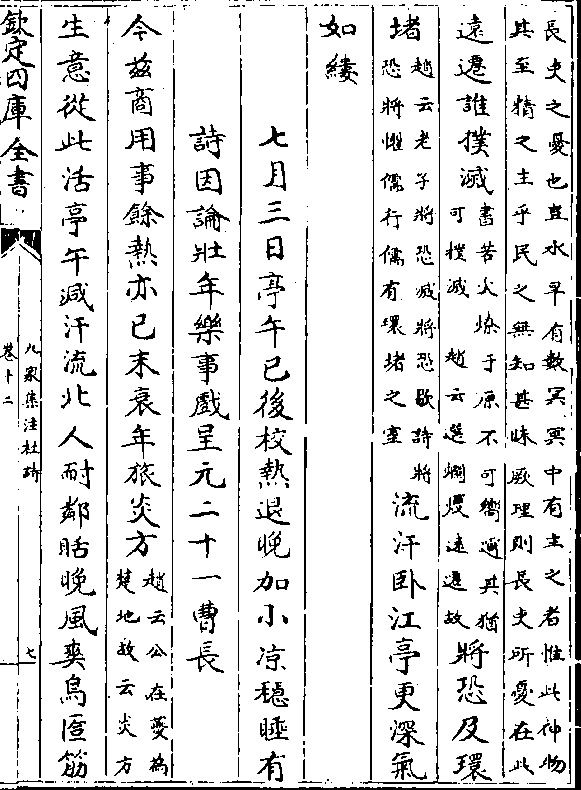 長吏之憂也豈水旱有數冥冥中有主之者惟此神物
其至精之主乎民之無知甚昧厥理則長吏所憂在此
遠遷誰撲滅
書若火燎于原不可嚮邇其猶
可撲滅 趙云選爛熳遠遷故
將恐及環
堵
趙云老子將恐滅將恐歇詩將
恐將懼儒行儒有環堵之室
流汗卧江亭更深氣
如縷
七月三日亭午已後校熱退晚加小凉穩睡有
詩因論壯年樂事戲呈元二十一曹長
今茲商用事餘熱亦已末衰年旅炎方
趙云公在夔為
楚地故云炎方
生意從此活亭午減汗流北人耐鄰聒晚風爽烏匼筋
欽定四庫全書
九家集注杜詩
卷十二
七